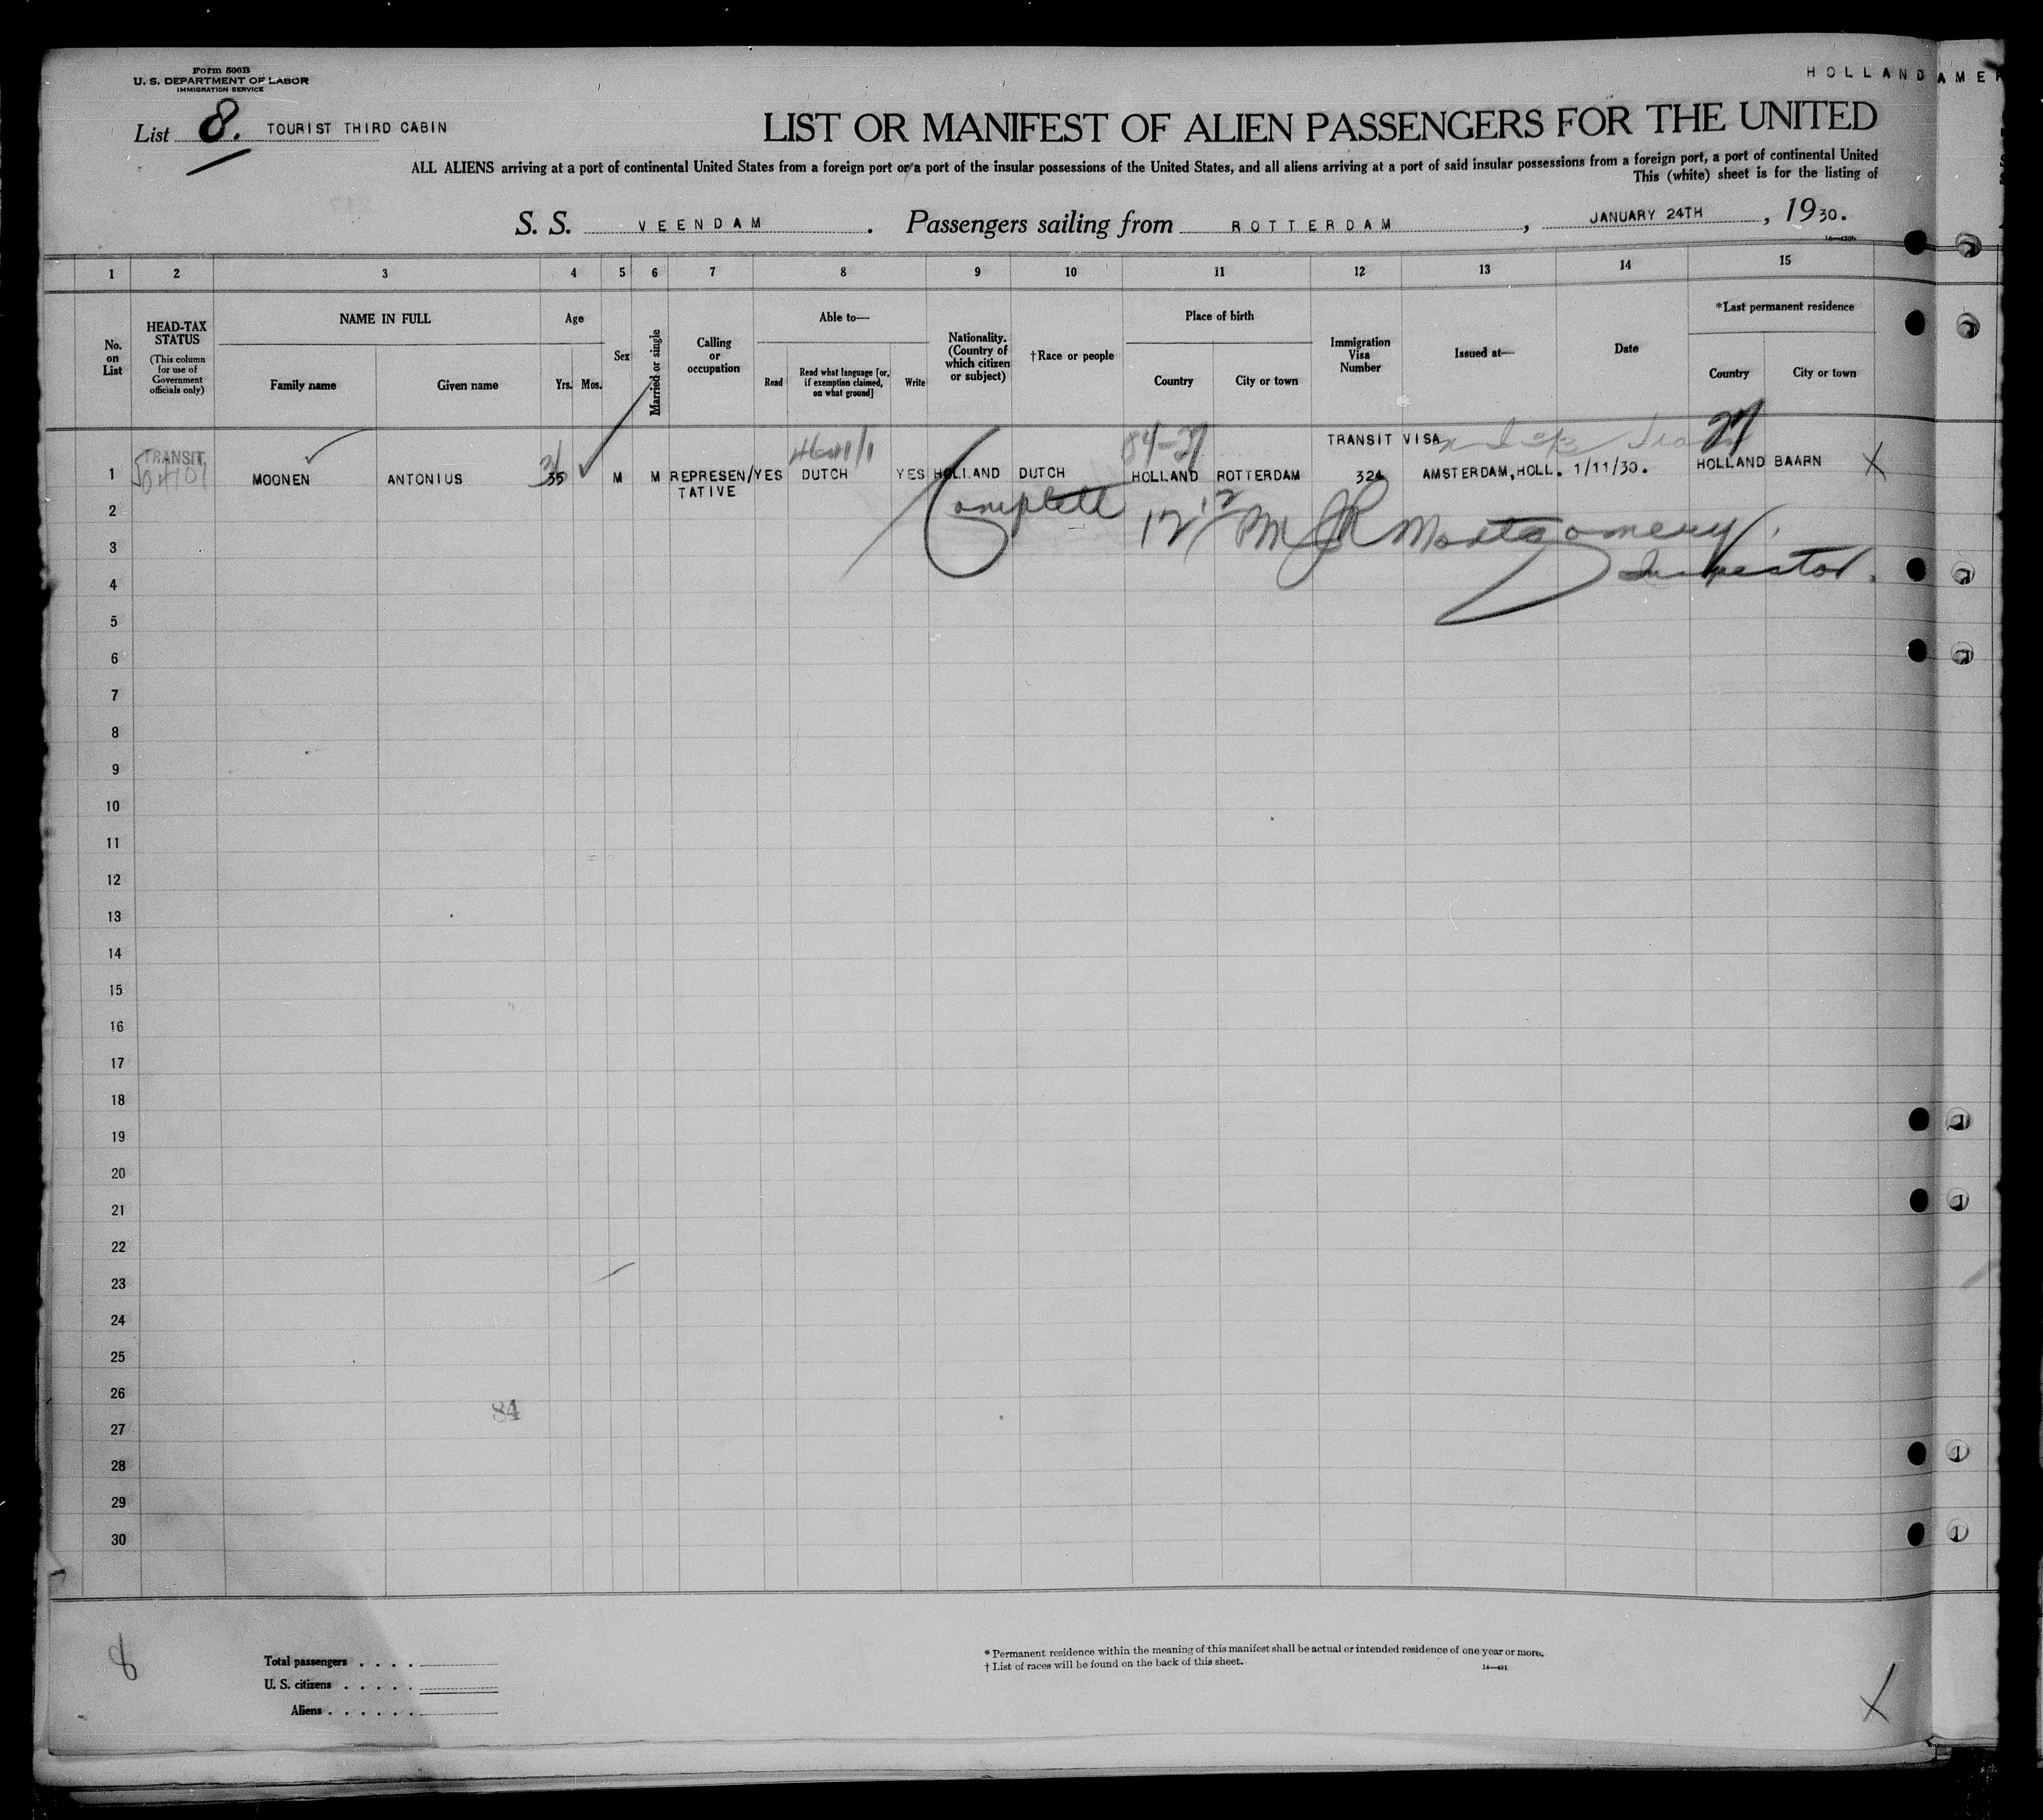 Form 500B
U. S. DEPARTMENT OF LABOR
IMMIGRATION SERVICE
HOLLAND AMER
List 8. TOURIST THIRD CABIN
LIST OR MANIFEST OF ALIEN PASSENGERS FOR THE UNITED
ALL ALIENS arriving at a port of continental United States from a foreign port or a port of the insular possessions of the United States, and all aliens arriving at a port of said insular possessions from a foreign port, a port of continental United
This (white) sheet is for the listing of
S. S. VEENDAM. Passengers sailing from ROTTERDAM, JANUARY 24TH, 1930.
1 2 3 4 5 6 7 8 9 10 11 12 13 14 15
No. on List
HEAD-TAX STATUS
(This column for use of Government officials only)
NAME IN FULL
Family name
Given name
Age
Yrs. Mos.
Sex
Married or single
Calling or occupation
Able to—
Read
Read what language [or, if exemption claimed, on what ground]
Write
Nationality. (Country of which citizen or subject)
†Race or people
Place of birth
Country
City or town
Immigration Visa Number
Issued at—
Date
*Last permanent residence
Country
City or town
84-27
TRANSIT VISA
27
TRANSIT
1 MOONEN ANTONIUS 35 M M REPRESEN/ YES DUTCH YES HOLLAND DUTCH HOLLAND ROTTERDAM 324 AMSTERDAM,HOLL. 1/11/30. HOLLAND BAARN X
TATIVE
2 Complete 12 12 PM JR Montgomery
3
Inspector.
4
5
6
7
8
9
10
11
12
13
14
15
16
17
18
19
20
21
22
23
24
25
26
84
27
28
29
30
8
Total passengers . . . .
U. S. citizens . . . . .
Aliens . . . . . .
* Permanent residence within the meaning of this manifest shall be actual or intended residence of one year or more.
† List of races will be found on the back of this sheet.
14—431
X